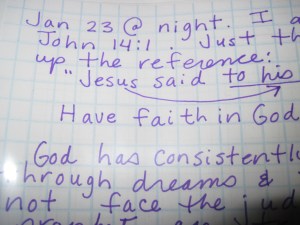 Jan 23 @ night. I
John 14:1. Just th
up the reference:
"Jesus said to his
Have faith in God
God has consistently
hrough dreams &
not face the jud